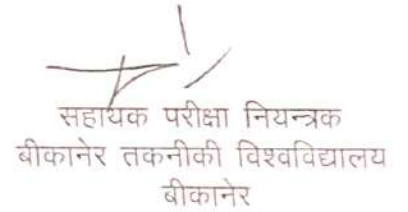 सहायक परीक्षा नियन्त्रक
बीकानेर तकनीकी विश्वविद्यालय
बीकानेर